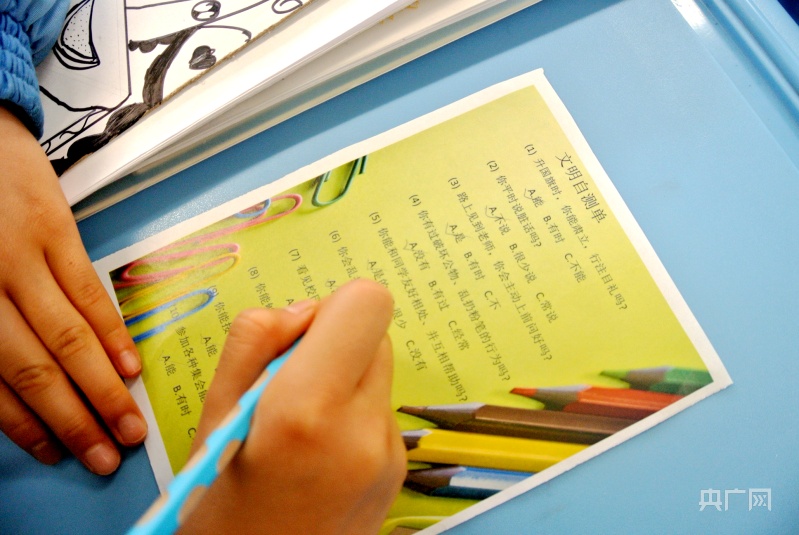 文明自测单
(1) 开国旗时，你能肃立、行注目礼吗？
A.能 B.有时 C.不能
(2) 你平时说脏话吗？
A.不说 B.很少说 C.常说
(3) 路上见到老师，你会主动上前问好吗？
A.是 B.有时 C.不
(4) 你有过破坏公物、乱扔粉笔的行为吗？
A.没有 B.有过 C.经常
(5) 你能和同学友好相处、并互相帮助吗？
A.是的 B.很少 C.没有
(6) 你会乱
(7) 看见校
(8) 你能
你能按
A.能
(10) 参加各种集会能
A.能 B.有时 C
央广网